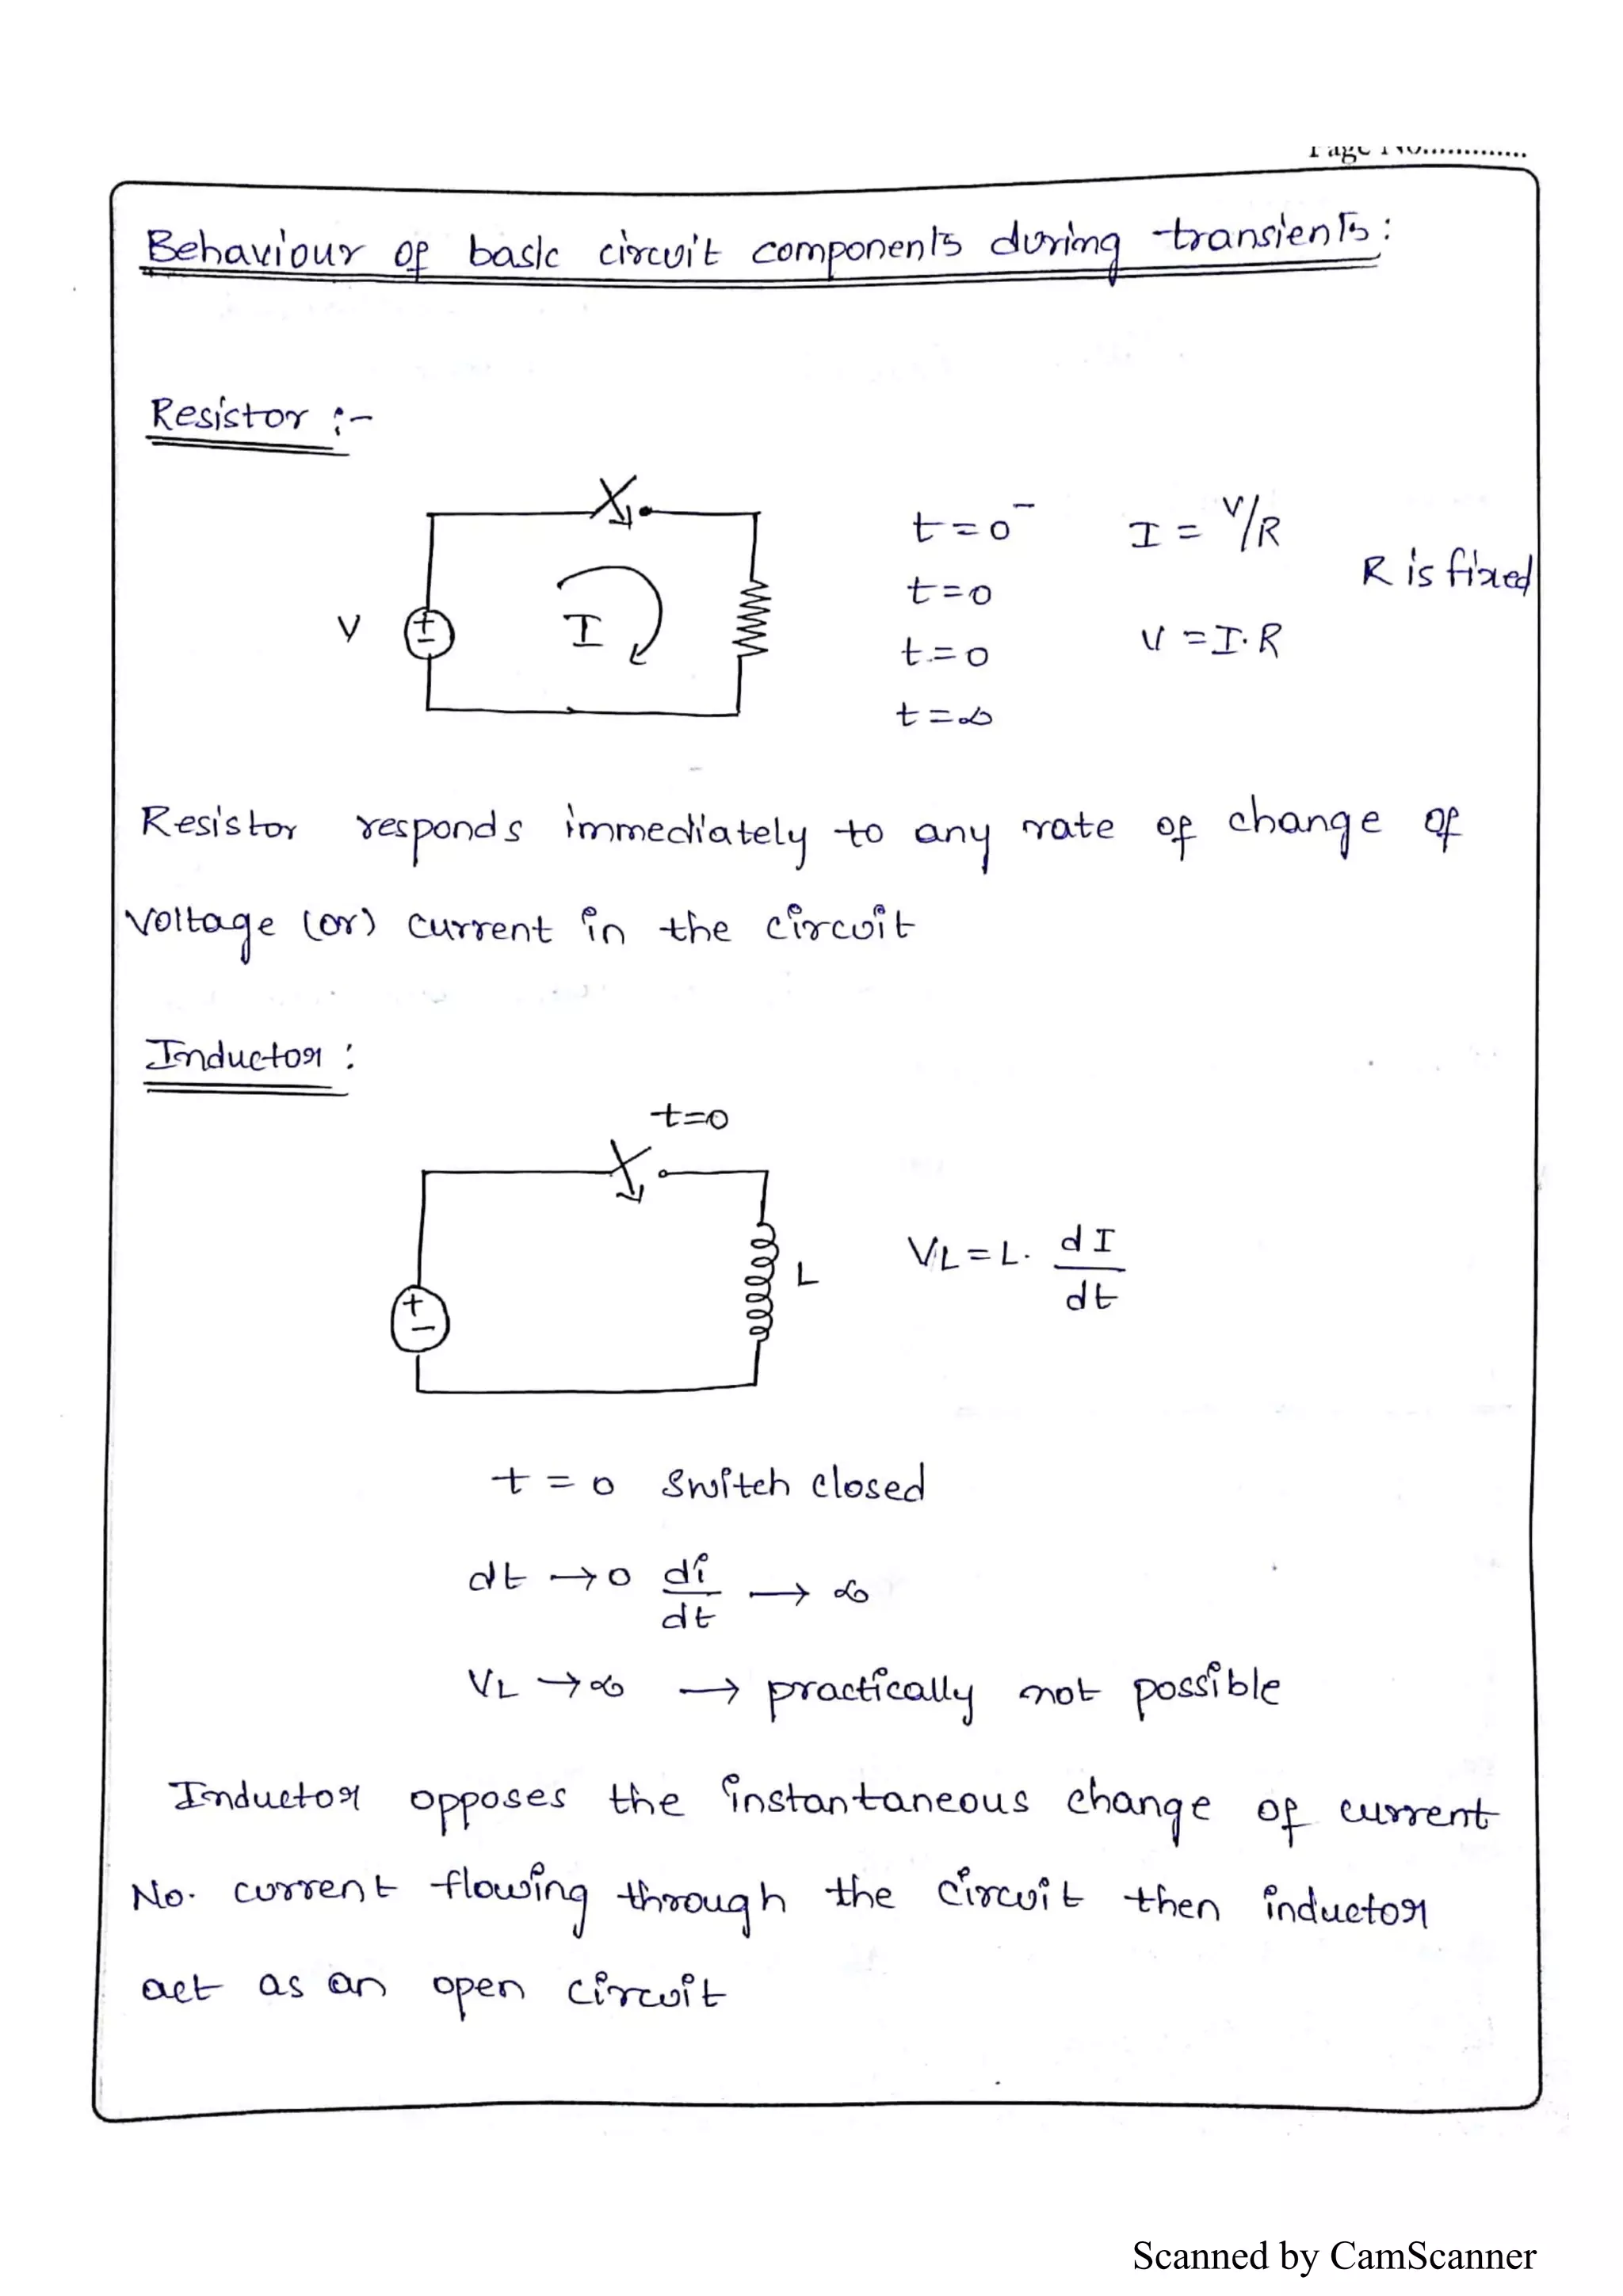 Page No..............
Behaviour of basic circuit components during transients:
Resistor :-
V
+
-
I
t=0⁻
t=0
t=0
t=∞
I = V/R
V = I.R
R is fixed
Resistor responds immediately to any rate of change of
voltage (or) current in the circuit
Inductor :
t=0
+
-
L
VL = L. dI/dt
t = 0 Switch closed
dt → 0 di/dt → ∞
VL → ∞ → practically not possible
Inductor opposes the instantaneous change of current
No. current flowing through the circuit then inductor
act as an open circuit
Scanned by CamScanner